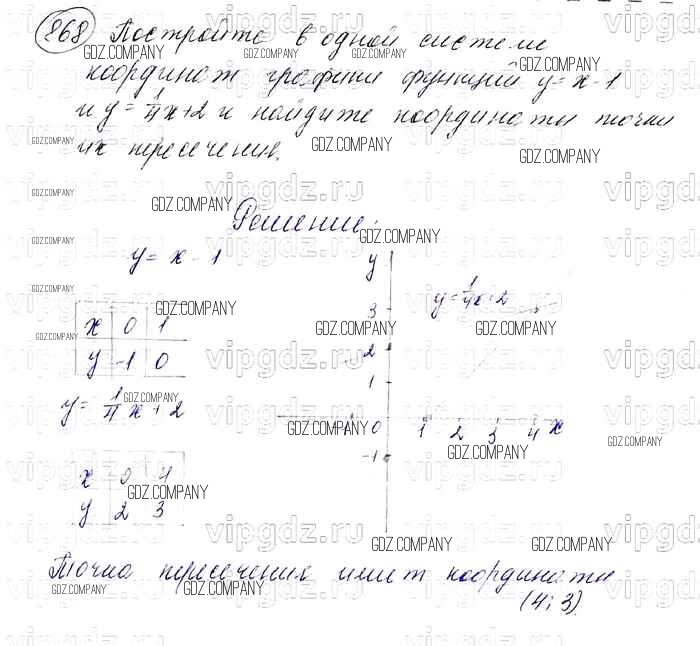 868 Постройте в одной системе
координат графики функций y = x - 1
и y = 1/4 x + 2 и найдите координаты точки
их пересечения.
Решение:
y = x - 1
x 0 1
y -1 0
y = 1/4 x + 2
x 0 4
y 2 3
y
y = 1/4 x + 2
3
2
1
-1 0 1 2 3 4 x
-1
Точка пересечения имеет координаты
(4; 3)
GDZ.COMPANY
vipgdz.ru